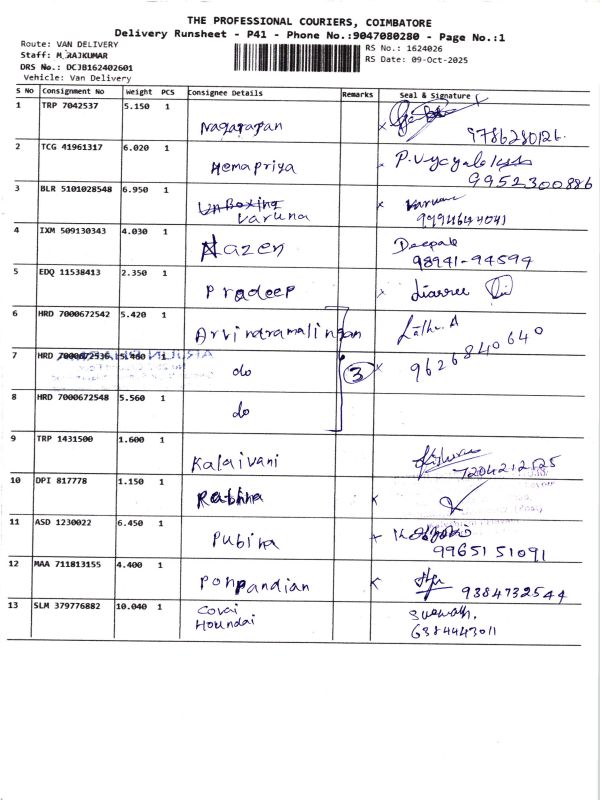 THE PROFESSIONAL COURIERS, COIMBATORE
Delivery Runsheet - P41 - Phone No.:9047080280 - Page No.:1
Route: VAN DELIVERY
RS No.: 1624026
Staff: M.RAJKUMAR
RS Date: 09-Oct-2025
DRS No.: DCJB162402601
Vehicle: Van Delivery
S No Consignment No Weight PCS Consignee Details Remarks Seal & Signature
1 TRP 7042537 5.150 1 Nagarajan
9786280126.
2 TCG 41961317 6.020 1 Hemapriya
9952300886
3 BLR 5101028548 6.950 1 UnBoxing
Varuna
9994644041
4 IXM 509130343 4.030 1 Nazen Deepak
98941-94594
5 EDQ 11538413 2.350 1 Pradeep
6 HRD 7000672542 5.420 1 Arvindramalingan
7 HRD 7000672536 5.460 1 do 3 9626840640
8 HRD 7000672548 5.560 1 do
9 TRP 1431500 1.600 1 Kalaivani
7204212525
10 DPI 817778 1.150 1
11 ASD 1230022 6.450 1 Pubina
9965151091
12 MAA 711813155 4.400 1 Ponpandian
9384732544
13 SLM 379776882 10.040 1 Covai
Houndai
6384443011